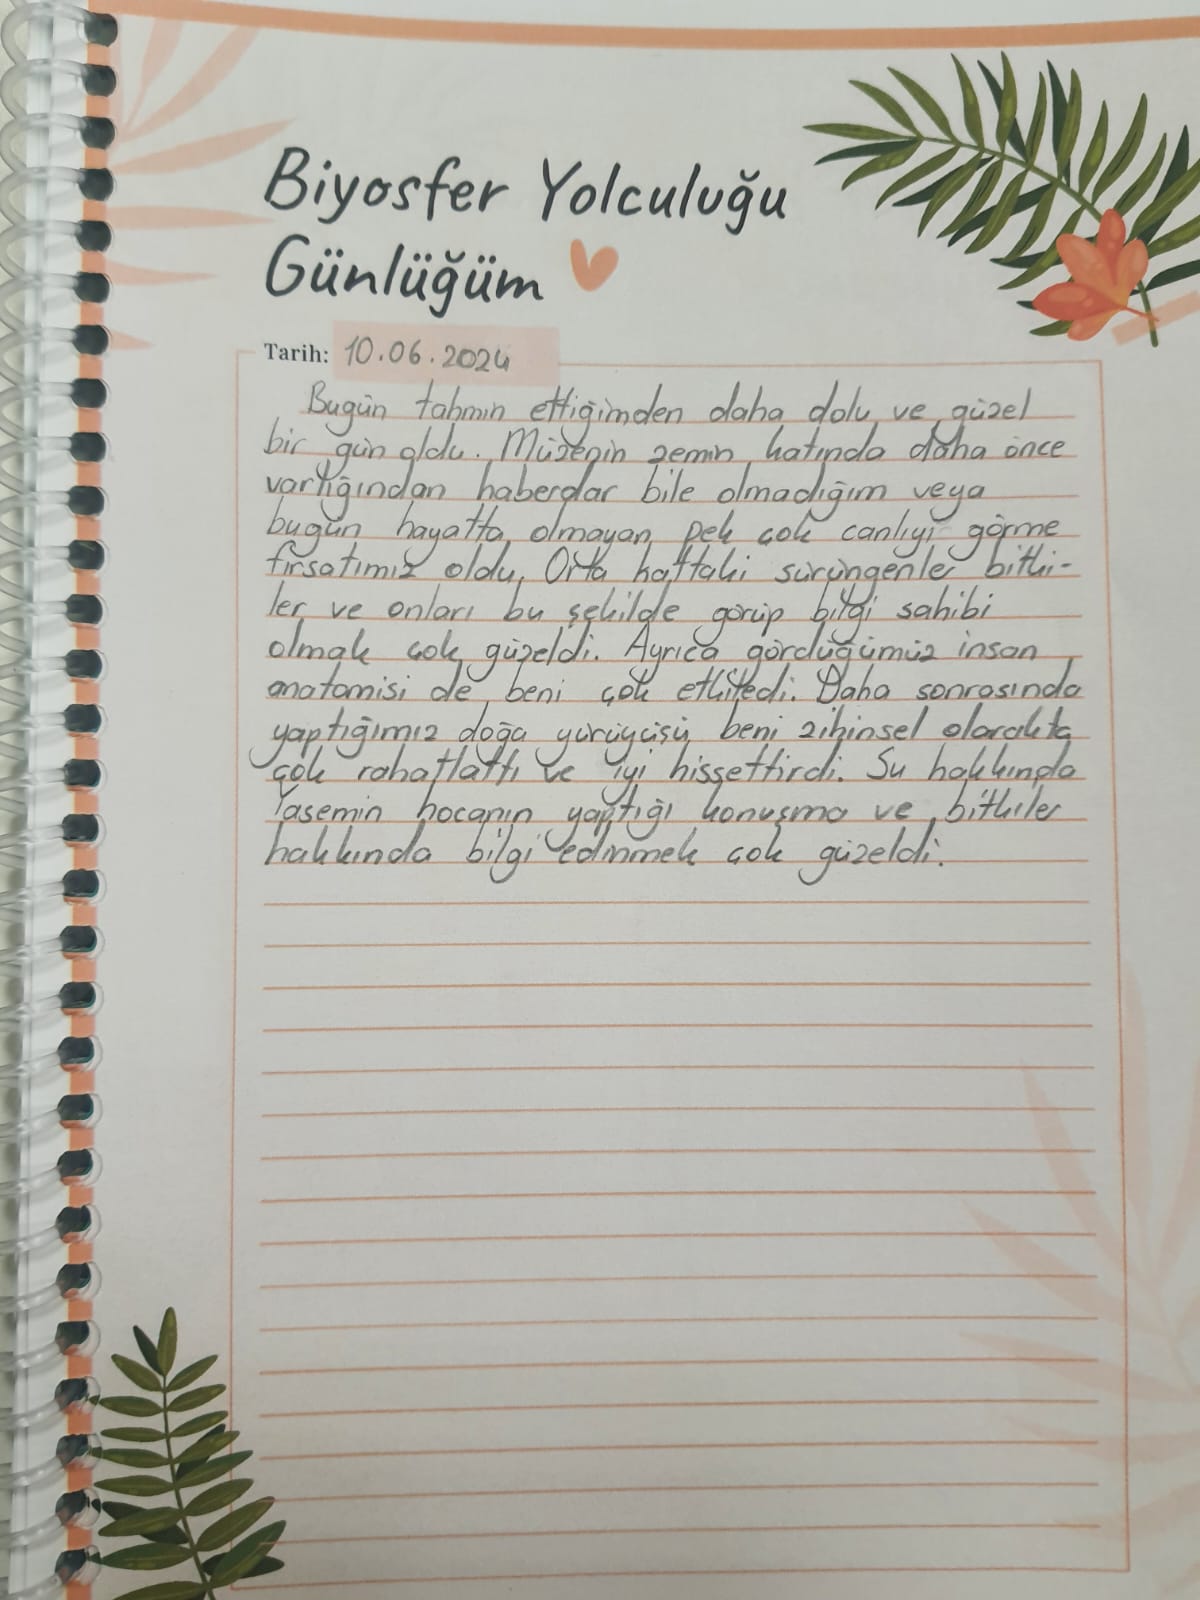 Biyosfer Yolculuğu
Günlüğüm
Tarih: 10.06.2024
Bugün tahmin ettiğimden daha dolu ve güzel
bir gün oldu. Müzenin zemin katında daha önce
varlığından haberdar bile olmadığım veya
bugün hayatta olmayan pek çok canlıyı görme
fırsatımız oldu. Orta kattaki sürüngenler bitki-
ler ve onları bu şekilde görüp bilgi sahibi
olmak çok güzeldi. Ayrıca gördüğümüz insan
anatomisi de beni çok etkiledi. Daha sonrasında
yaptığımız doğa yürüyüşü beni zihinsel olarakta
çok rahatlattı ve iyi hissettirdi. Su hakkında
Yasemin hocanın yaptığı konuşma ve bitkiler
hakkında bilgi edinmek çok güzeldi.